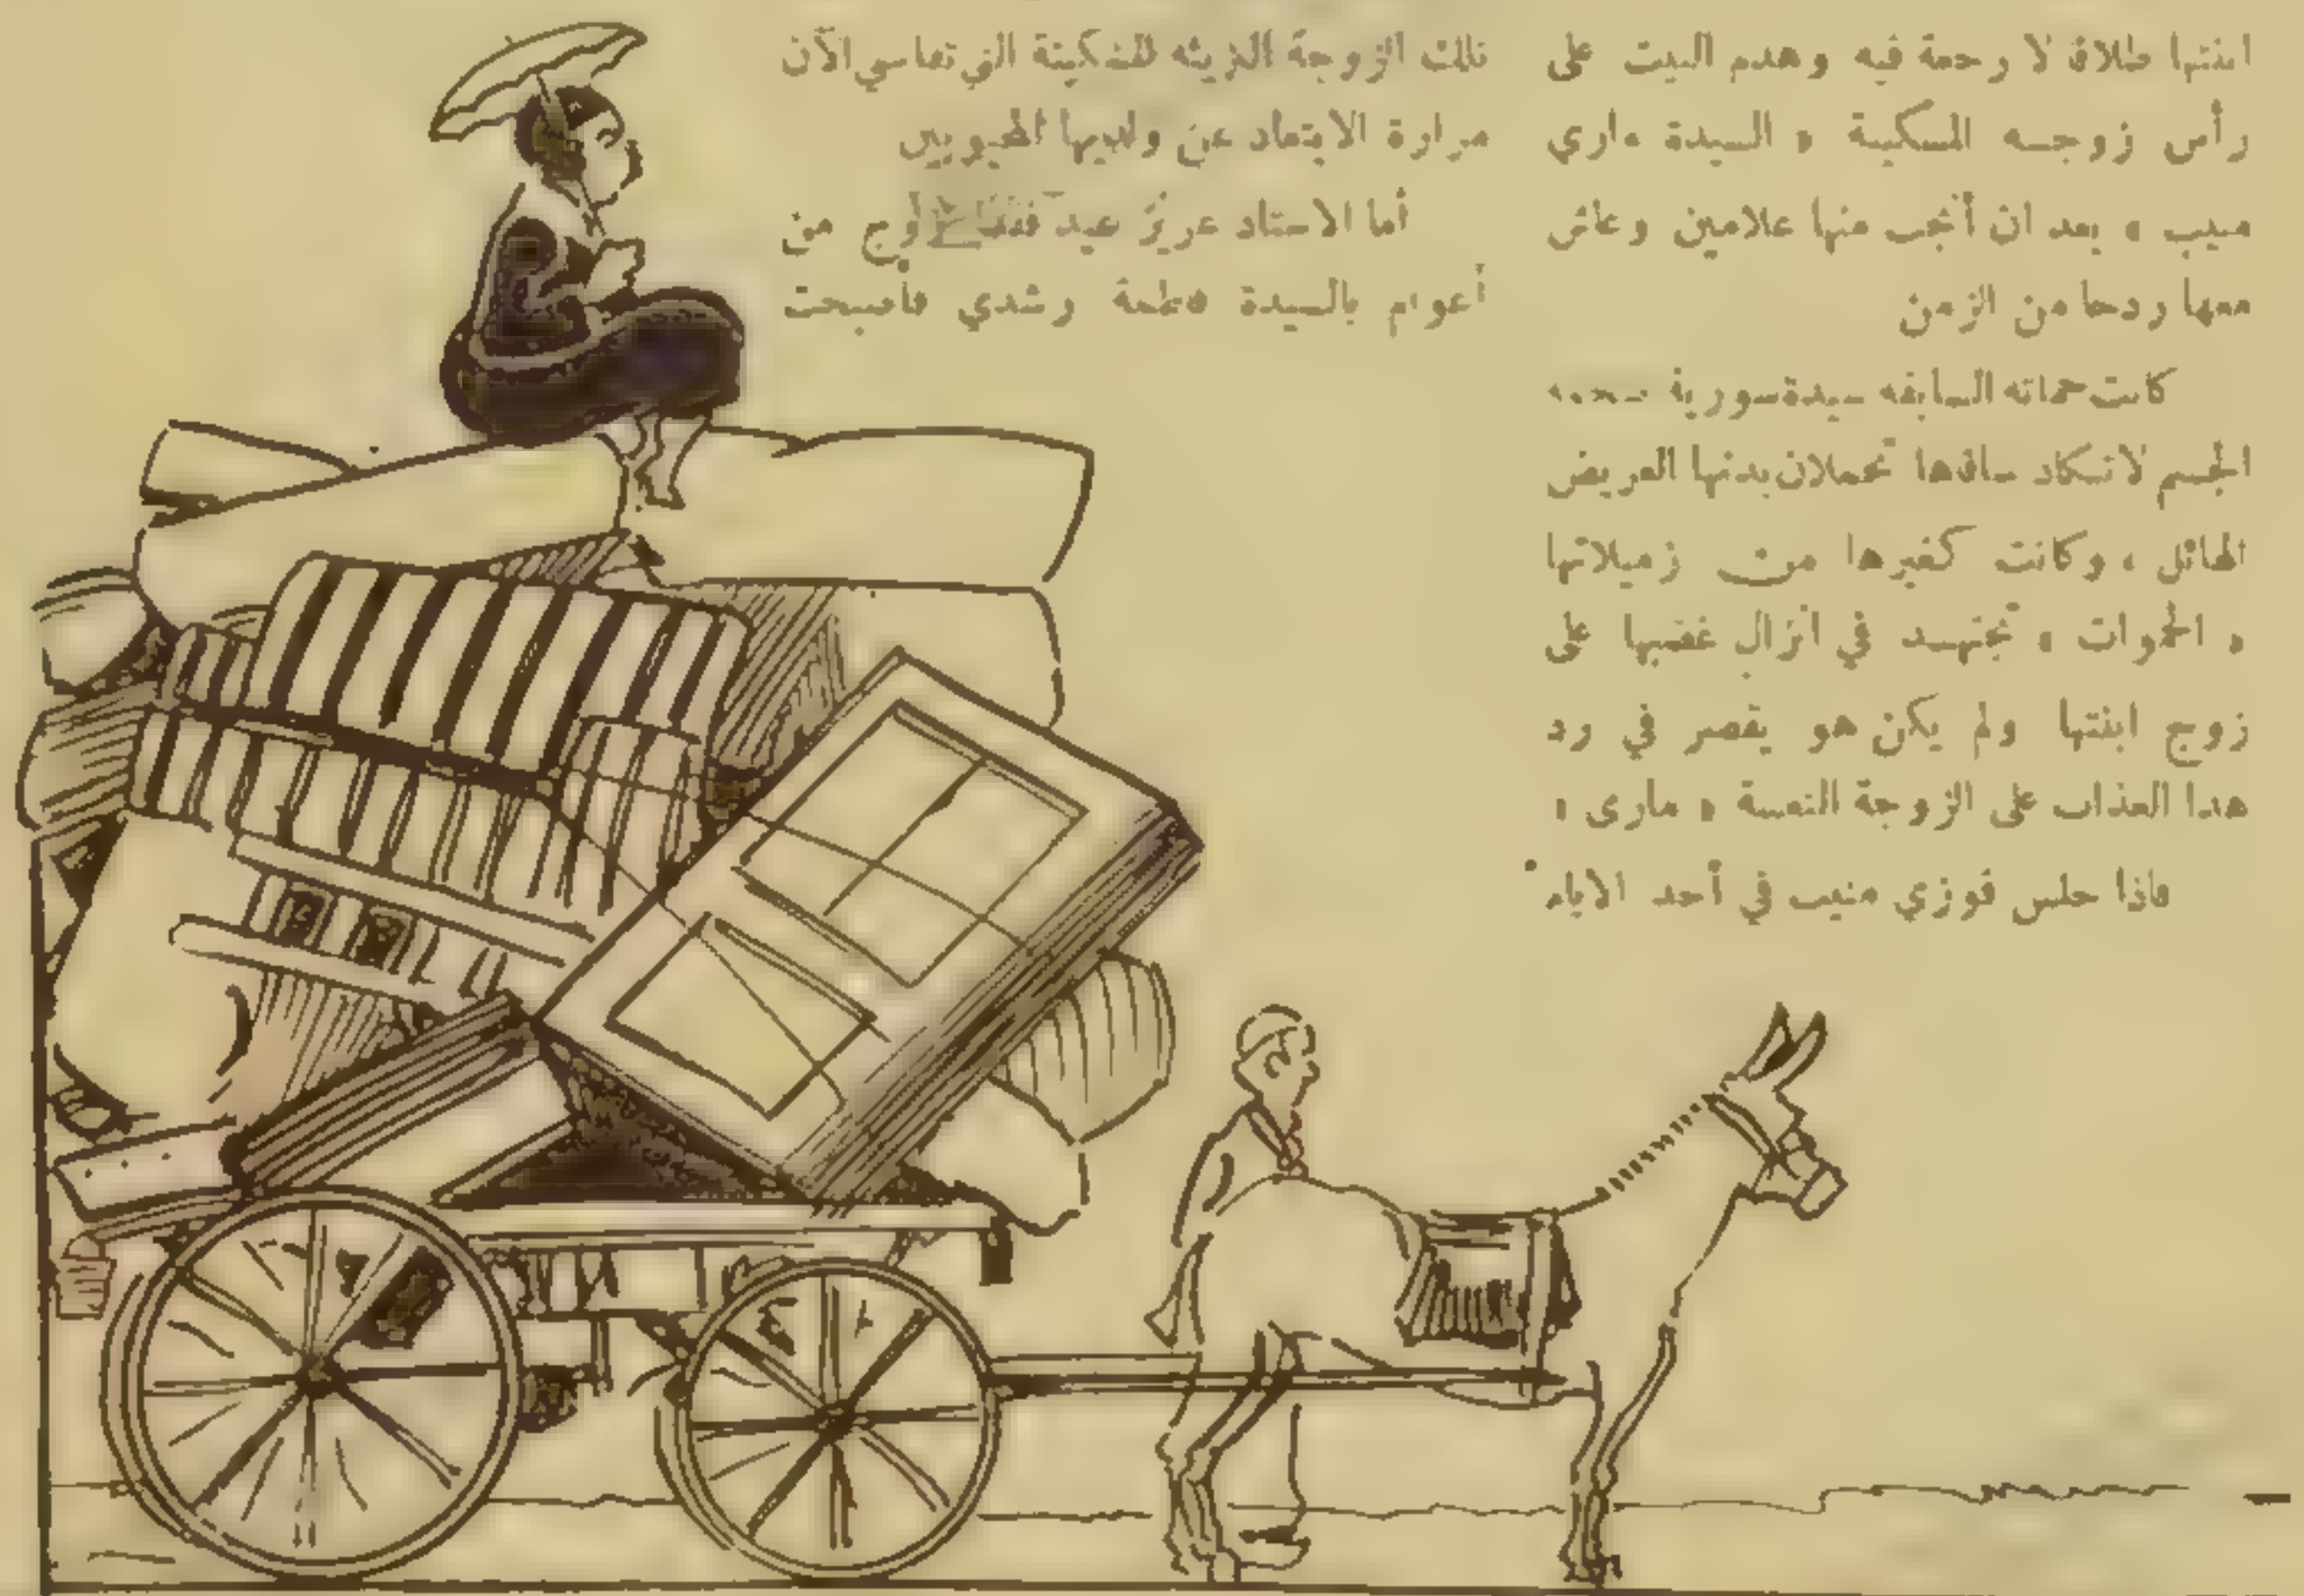 ابنتها طلاق لا رحمة فيه وهدم البيت على
رأس زوجه المسكينة « السيدة ماري
منيب » بعد ان أنجب منها غلامين وعاش
معها ردحا من الزمن
كانت حماته السابقه سيدة سورية
الجسم لا تكاد ساقاها تحملان بدنها العريض
الهائل ، وكانت كغيرها من زميلاتها
« الحموات » تجتهد في انزال غضبها على
زوج ابنتها ولم يكن هو يقصر في رد
هذا العذاب على الزوجة التعسة « مارى »
فاذا جلس فوزي منيب في أحد الايام
تلك الزوجة البريئه المسكينة التي تقاسي الآن
مرارة الابتعاد عن ولديها المحبوبين
أما الاستاذ عزيز عيد فقد تزوج من
أعوام بالسيدة فاطمة رشدي فأصبحت